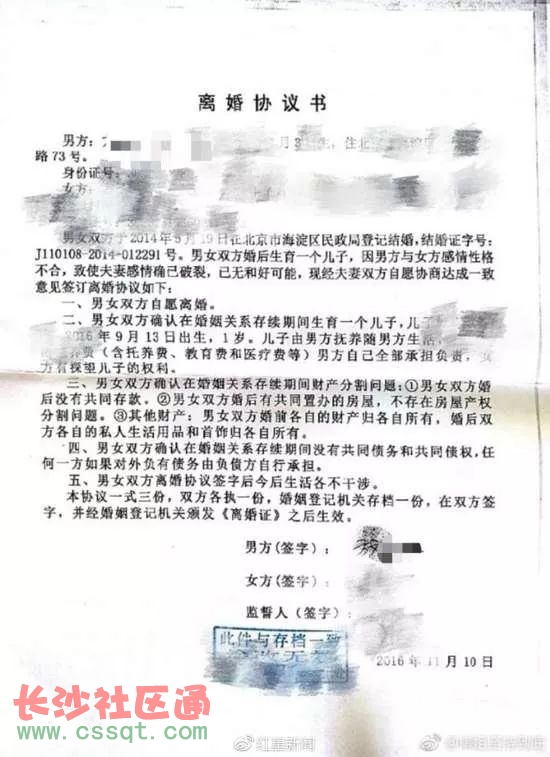 离婚协议书
男方：
生，住北
路73号。
身份证号：
女方：
男女双方于2014年5月19日在北京市海淀区民政局登记结婚，结婚证字号：
J110108-2014-012291号。男女双方婚后生育一个儿子，因男方与女方感情性格
不合，致使夫妻感情确已破裂，已无和好可能，现经夫妻双方自愿协商达成一致
意见签订离婚协议如下：
一、男女双方自愿离婚。
二、男女双方确认在婚姻关系存续期间生育一个儿子，儿子
2016年9月13日出生，1岁。儿子由男方抚养随男方生活，
养费（含托养费、教育费和医疗费等）男方自己全部承担负责，女方
有探望儿子的权利。
三、男女双方确认在婚姻关系存续期间财产分割问题：①男女双方婚
后没有共同存款。②男女双方婚后有共同置办的房屋，不存在房屋产权
分割问题。③其他财产：男女双方婚前各自的财产归各自所有，婚后双
方各自的私人生活用品和首饰归各自所有。
四、男女双方确认在婚姻关系存续期间没有共同债务和共同债权，任
何一方如果对外负有债务由负债方自行承担。
五、男女双方离婚协议签字后今后生活各不干涉。
本协议一式三份，双方各执一份，婚姻登记机关存档一份，在双方签
字，并经婚姻登记机关颁发《离婚证》之后生效。
男方(签字)：
女方(签字)：
监督人（签字）：
此件与存档一致
2016年11月10日
长沙社区通
www.cssqt.com
红星新闻